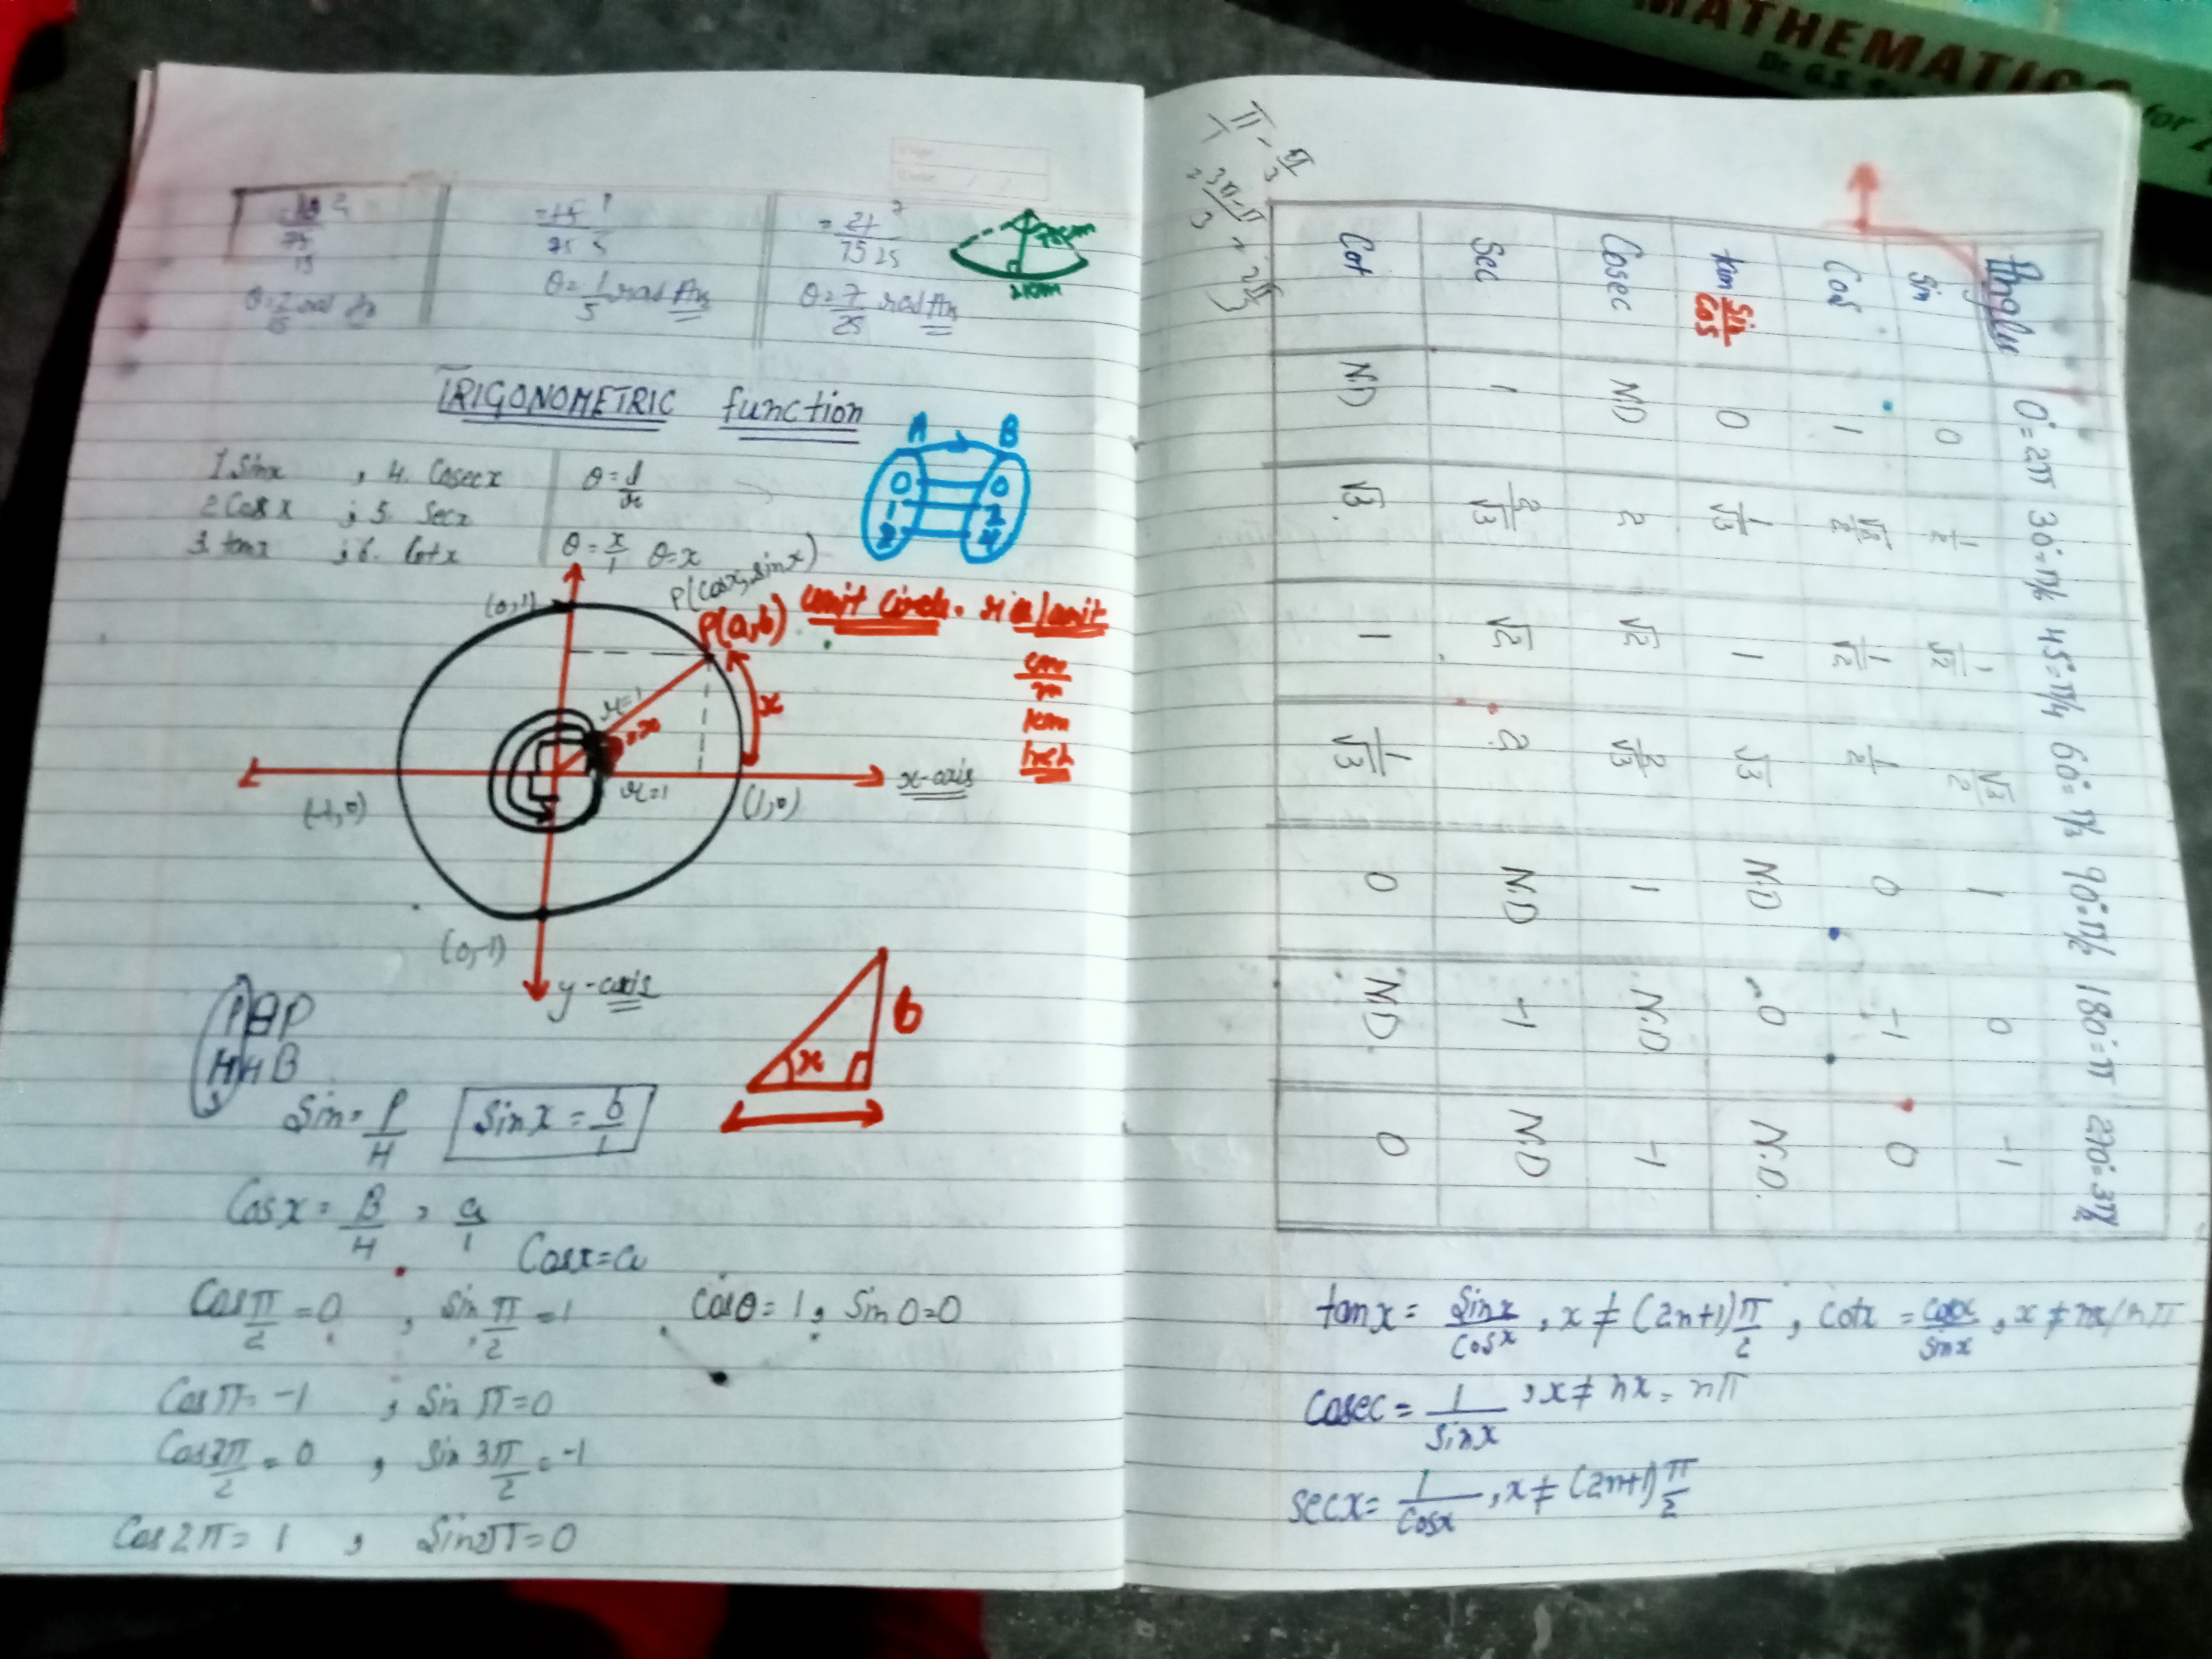 MATHEMATICS
for
= 15 1
75 5
= 21 7
75 25
21cm
θ = 1/5 rad Ans
θ = 7/25 rad Ans
TRIGONOMETRIC function
A B
1. Sinx , 4. Cosecx
2. Cosx , 5. Secx
3. tanx , 6. Cotx
θ = l/r
θ = x/1 θ=x
0 0
1 2
2 4
P(cosx, sinx)
P(a,b) unit circle. r is 1 unit
cm
m
km
(0,1)
r=1
x
r=1
x-axis
(-1,0)
(1,0)
(0,-1)
y-axis
PBP
HHB
b
x
Sin = P/H Sinx = b/1
Cosx = B/H , a/1
Cosx=a
Cos π/2 = 0 , Sin π/2 = 1 Cos0 = 1, Sin 0=0
Cos π = -1 , Sin π=0
Cos 3π/2 = 0 , Sin 3π/2 = -1
Cos 2π = 1 , Sin 2π=0
π/1 - π/3
3π-π/3 , 2π/3
Angle 0°=2π 30°=π/6 45°=π/4 60°=π/3 90°=π/2 180°=π 270°=3π/2
Sin 0 1/2 1/√2 √3/2 1 0 -1
Cos 1 √3/2 1/√2 1/2 0 -1 0
tan Sin/Cos 0 1/√3 1 √3 N.D 0 N.D.
Cosec ND 2 √2 2/√3 1 N.D -1
Sec 1 2/√3 √2 2 N.D -1 N.D
Cot N.D √3 1 1/√3 0 N.D. 0
tanx = Sinx/Cosx , x ≠ (2n+1)π/2 , Cotx = Cosx/Sinx , x ≠ nx/nπ
Cosec = 1/Sinx , x ≠ nx = nπ
Secx = 1/Cosx , x ≠ (2n+1)π/2